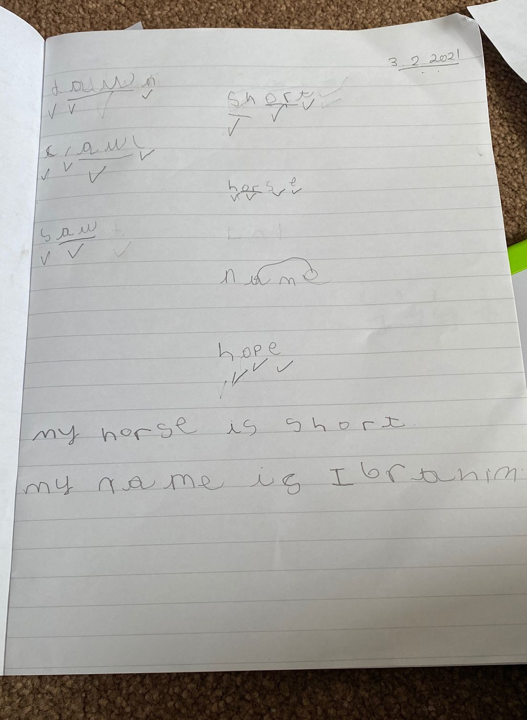 3.2.2021
dawn
short
crawl
horse
saw
name
hope
my horse is short
my name is Ibrahim.